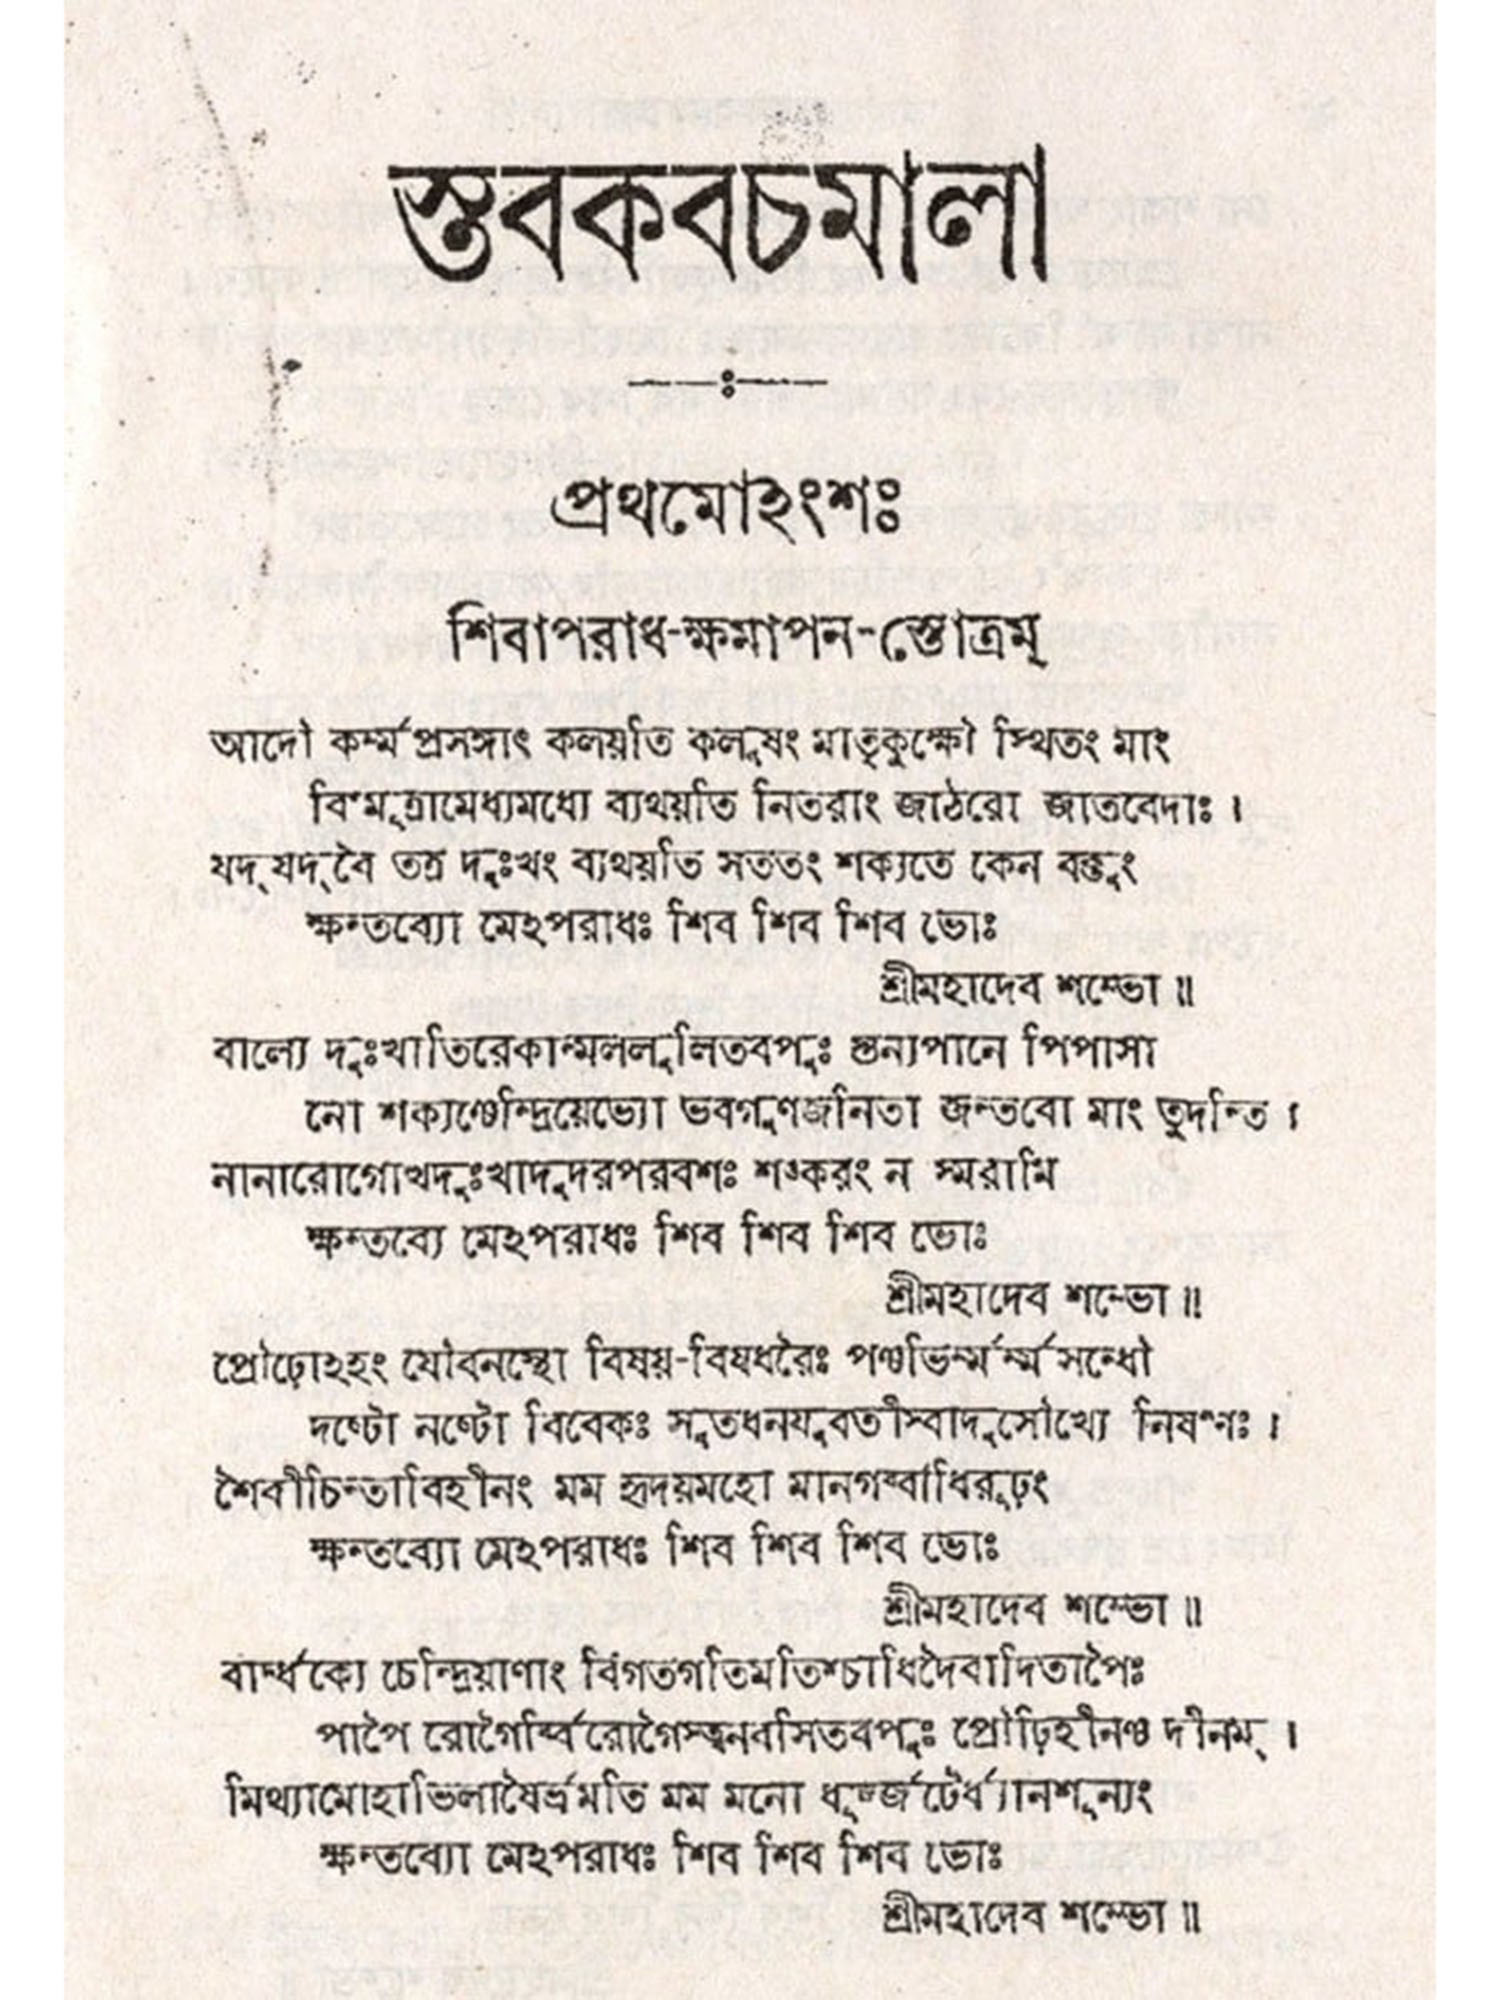 স্তবকবচমালা
প্রথমোঽংশঃ
শিবাপরাধ-ক্ষমাপন-স্তোত্রম্
আদৌ কর্ম্মপ্রসঙ্গাৎ কলয়তি কলুষং মাতৃকুক্ষৌ স্থিতং মাং
বিণ্মূত্রামেধ্যমধ্যে ব্যথয়তি নিতরাং জাঠরো জাতবেদাঃ ।
যদ্ যদ্ বৈ তত্র দুঃখং ব্যথয়তি সততং শক্যতে কেন বক্তুং
ক্ষন্তব্যো মেঽপরাধঃ শিব শিব শিব ভোঃ
শ্রীমহাদেব শম্ভো ॥
বাল্যে দুঃখাতিরেকান্মললুলিতবপুঃ স্তন্যপানে পিপাসা
নো শক্যঞ্চেন্দ্রিয়েভ্যো ভবগুণজনিতা জন্তবো মাং তুদন্তি ।
নানারোগোত্থদুঃখাদুদরপরবশঃ শঙ্করং ন স্মরামি
ক্ষন্তব্যে মেঽপরাধঃ শিব শিব শিব ভোঃ
শ্রীমহাদেব শম্ভো ॥
প্রৌঢ়োঽহং যৌবনস্থো বিষয়-বিষধরৈঃ পঞ্চভির্ম্মর্ম্মসন্ধৌ
দষ্টো নষ্টো বিবেকঃ সুতধনযুবতীস্বাদুসৌখ্যে নিষণ্ণঃ ।
শৈবীচিন্তাবিহীনং মম হৃদয়মহো মানগর্ব্বাধিরূঢ়ং
ক্ষন্তব্যো মেঽপরাধঃ শিব শিব শিব ভোঃ
শ্রীমহাদেব শম্ভো ॥
বার্দ্ধক্যে চেন্দ্রিয়াণাং বিগতগতিমতিশ্চাধিদৈবাদিতাপৈঃ
পাপৈ রোগৈর্ব্বিরোগৈস্ত্বনবসিতবপুঃ প্রৌঢ়িহীনঞ্চ দীনম্ ।
মিথ্যামোহাভিলাষৈর্ভ্রমতি মম মনো ধূর্জ্জটের্ধ্যানশূন্যং
ক্ষন্তব্যো মেঽপরাধঃ শিব শিব শিব ভোঃ
শ্রীমহাদেব শম্ভো ॥